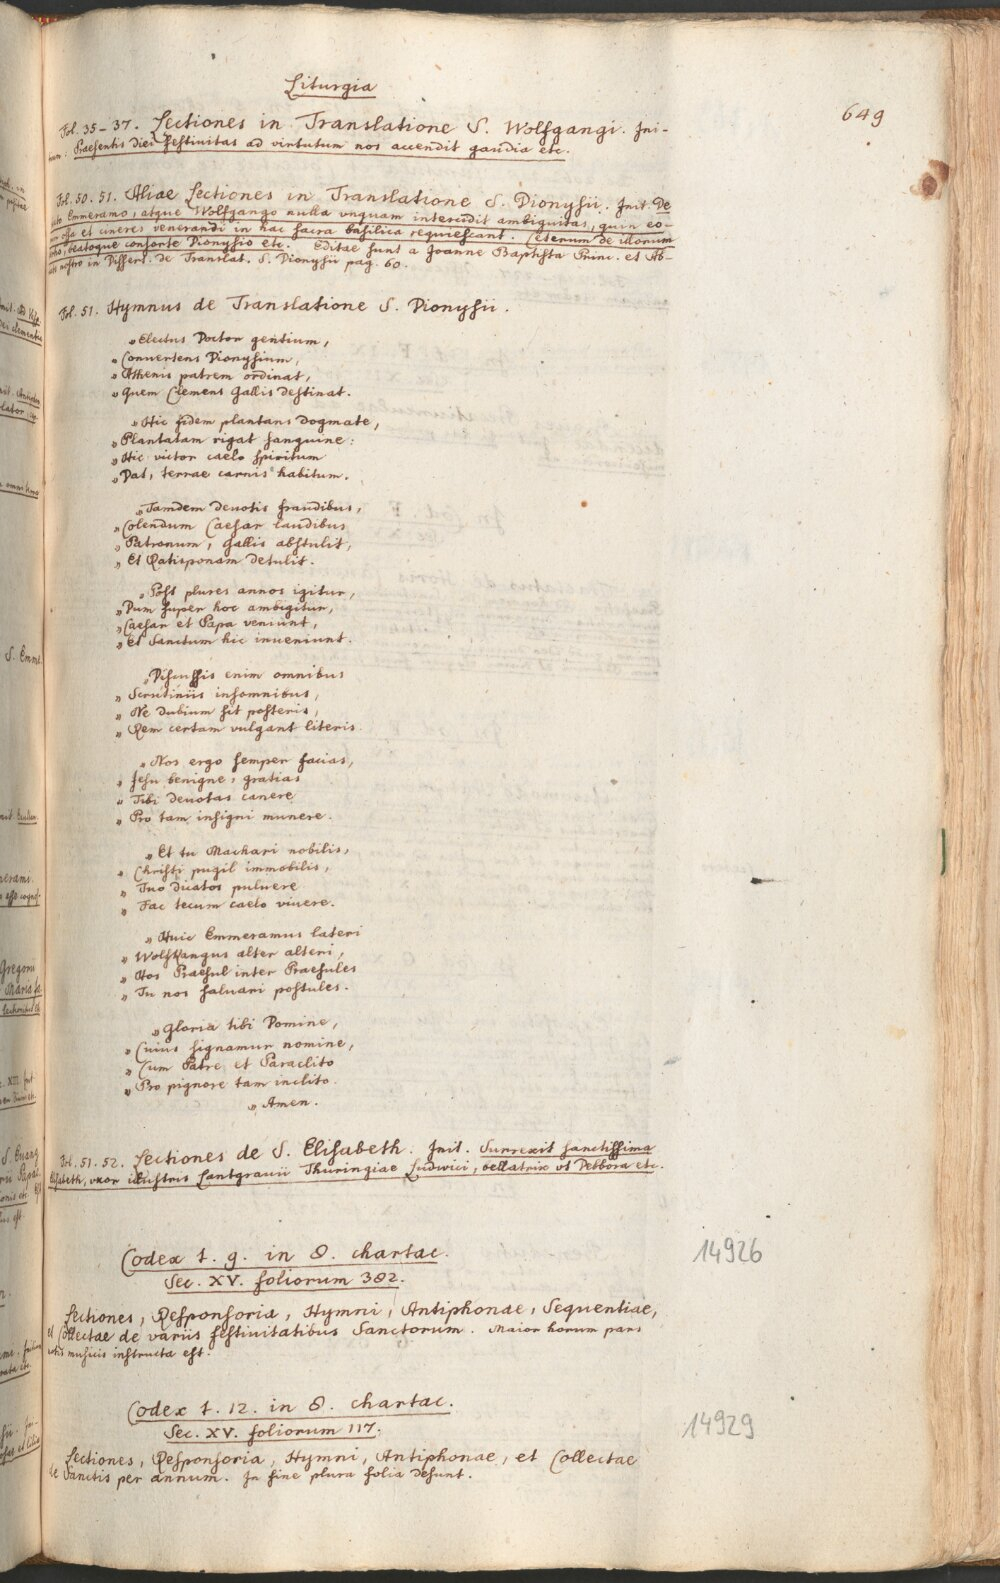 Liturgia
649
Fol. 35-37. Lectiones in Translatione S. Wolfgangi. Ini-
tium. Praesentis diei festivitas ad virtutum nos accendit gaudia etc.
Fol. 50. 51. Aliae Lectiones in Translatione S. Dionysii. Init. De
Emmeramo, atque Wolfgango nulla vnquam intercidit ambiguitas, quin eo-
rum ossa et cineres venerandi in hac sacra basilica requiescant. Ceterum de illorum
beatoque consorte Dionysio etc. Editae sunt a Joanne Baptista Princ. et Ab-
nostro in Dissert. de Translat. S. Dionysii pag. 60.
Fol. 51. Hymnus de Translatione S. Dionysii.
„Electus Doctor gentium,
„Convertens Dionysium,
„Athenis patrem ordinat,
„Quem Clemens Gallis destinat.
„Hic fidem plantans dogmate,
„Plantatam rigat sanguine:
„Hic victor caelo spiritum
„Dat, terrae carnis habitum.
„Tamdem devotis fraudibus,
„Colendum Caesar laudibus
„Patronum, Gallis abstulit,
„Et Ratisponam detulit.
„Post plures annos igitur,
„Dum super hoc ambigitur,
„Caesar et Papa veniunt,
„Et Sanctum hic inveniunt.
„Discussis enim omnibus
„Scrutiniis insomnibus,
„Ne dubium sit posteris,
„Rem certam vulgant literis.
„Nos ergo semper facias,
„Jesu benigne, gratias
„Tibi devotas canere
„Pro tam insigni munere.
„Et tu Machari nobilis,
„Christi pugil immobilis,
„Tuo ducatos pulvere
„Fac tecum caelo vivere.
„Huic Emmeramus lateri
„Wolfkangus alter alteri,
„Hos Praesul inter Praesules
„Tu nos salvari postules.
„Gloria tibi Domine,
„Cuius signamur nomine,
„Cum Patre et Paraclito
„Pro pignore tam inclito.
„Amen.
Fol. 51. 52. Lectiones de S. Elisabeth. Init. Surrexit sanctissima
Elisabeth, vxor illustris Lantgravii Thuringiae Ludwici, bellatrix vt Debbora etc.
Codex t. g. in 8. chartac.
Sec. XV. foliorum 382.
14926
Lectiones, Responsoria, Hymni, Antiphonae, Sequentiae,
et Collectae de variis festivitatibus Sanctorum. Maior horum pars
notis musicis instructa est.
Codex t. 12. in 8. chartac.
Sec. XV. foliorum 117.
14929
Lectiones, Responsoria, Hymni, Antiphonae, et Collectae
de Sanctis per annum. In fine plura folia desunt.